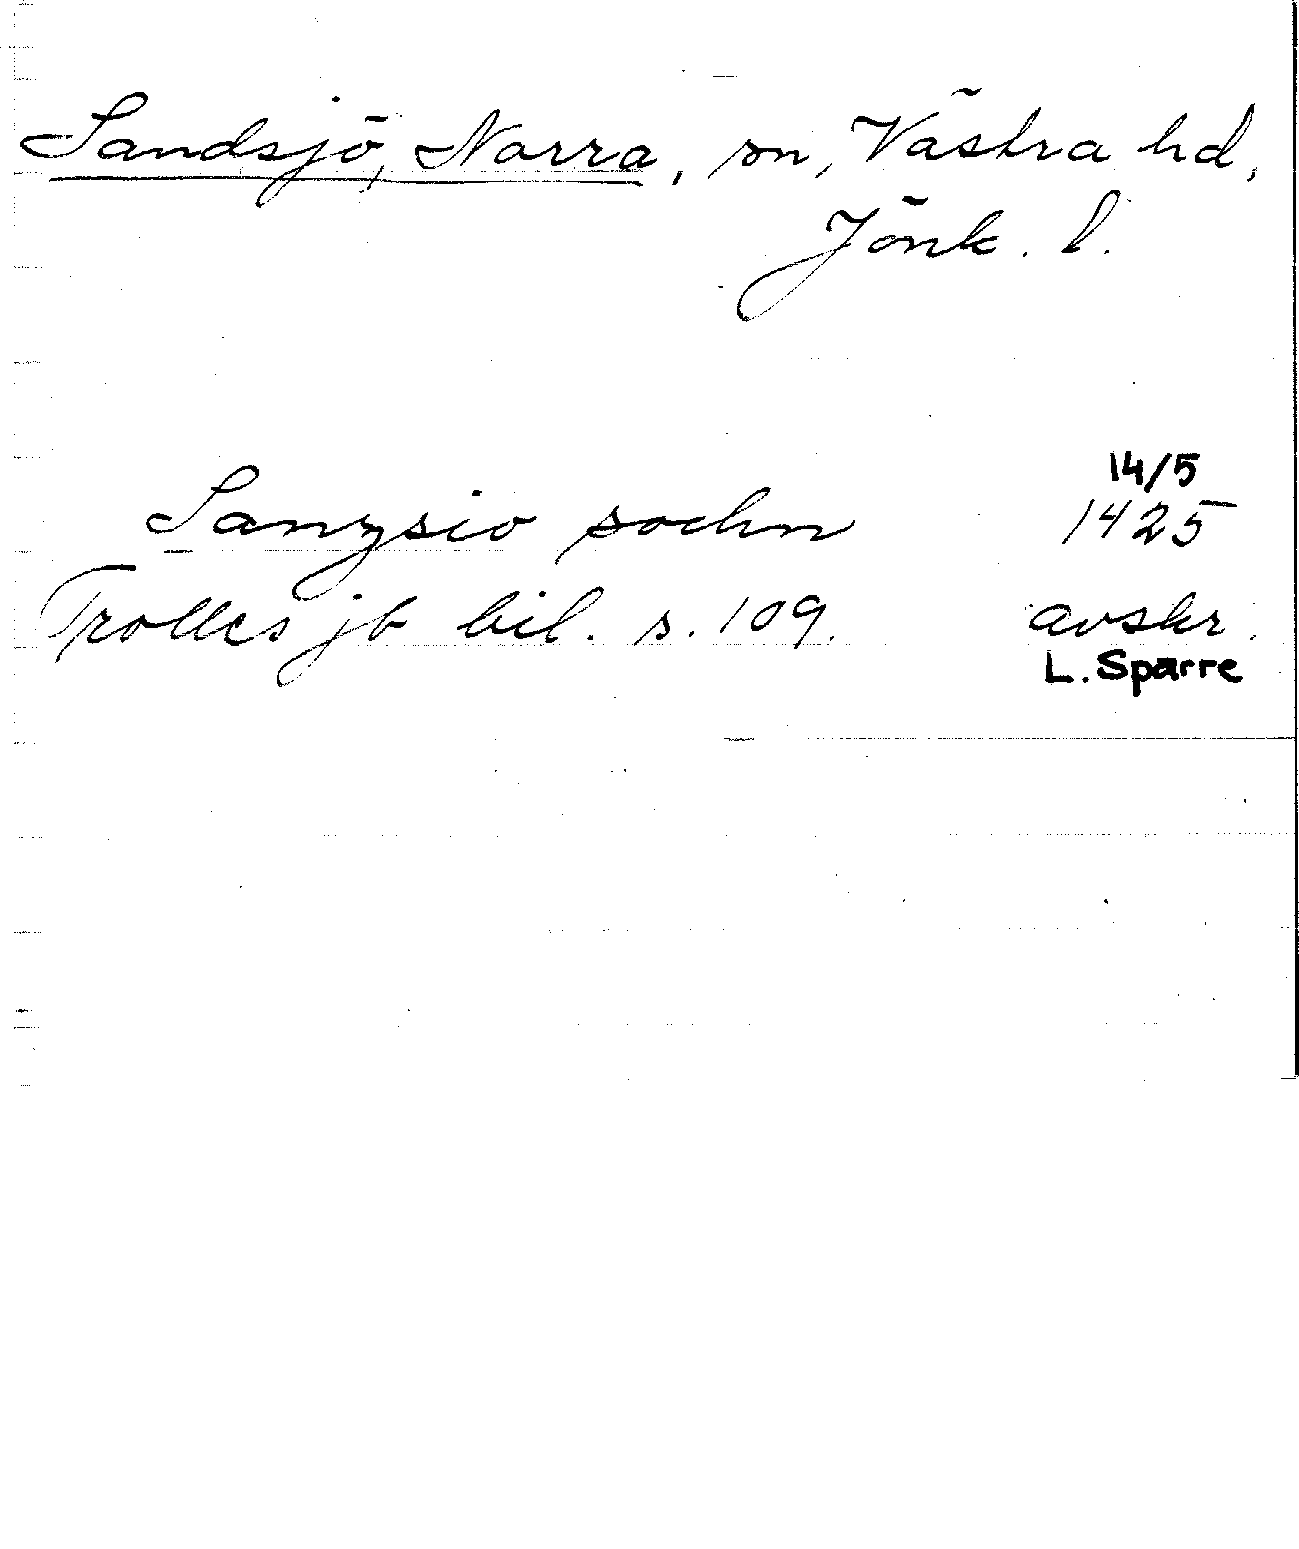 Sandsjö, Norra, sn, Västra hd,
Jönk. l.
14/5
Sanzsio sochn 1425
Trolles jb bil. s. 109. avskr.
L. Sparre